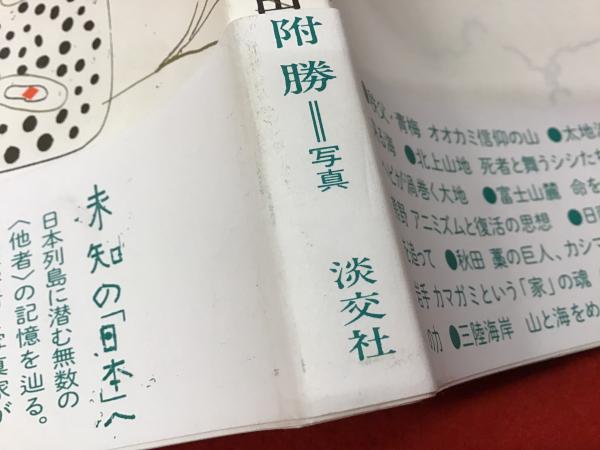 附勝=写真
淡交社
未知の「日本」へ
日本列島に潜む無数の
〈他者〉の記憶を辿る。
父・青梅 オオカミ信仰の山 ●太地
●北上山地 死者と舞うシシた
渦巻く大地 ●富士山麓 命を
アニミズムと復活の思想 ●日
って ●秋田 藁の巨人、カシマ
岩手 カマガミという「家」の魂
の力 ●三陸海岸 山と海をめ